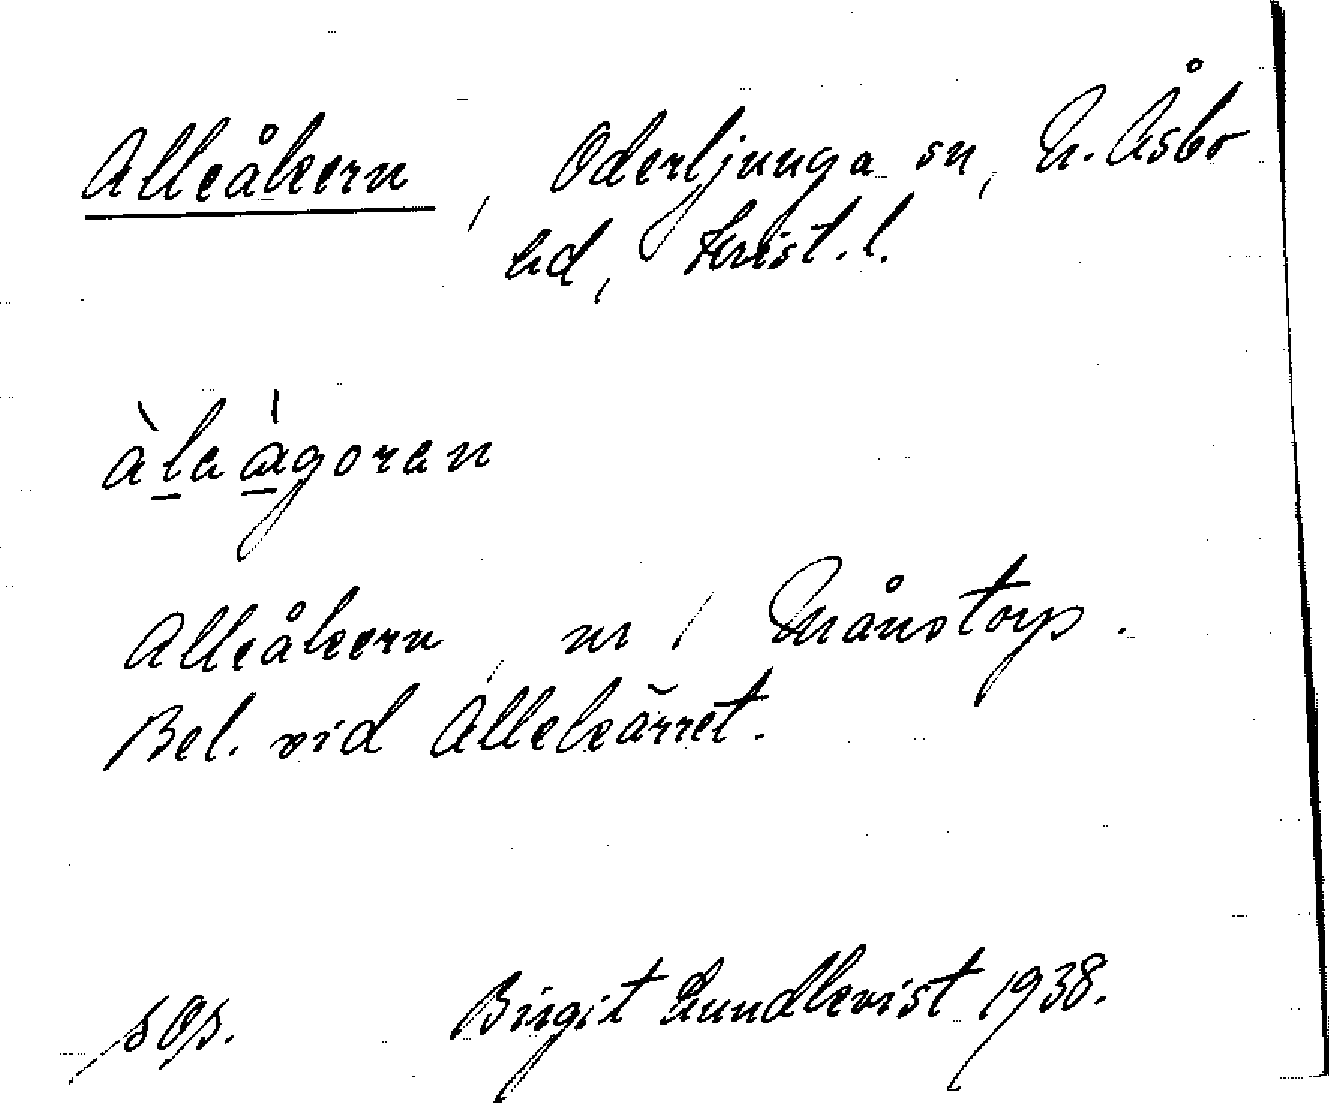 Alleåkern, Oderljunga sn, N. Åsbo
hd, Krist. l.
àlaágoran
Alleåkern, nr 1 Månstorp.
Bel. vid Allekärret.
sOp. Birgit Lundkvist 1938.